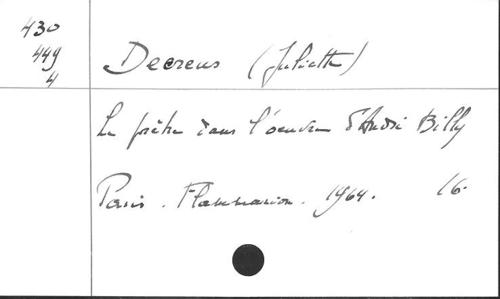 430
449
4
Decreus (Juliette)
Le prêtre dans l'oeuvre d'André Billy
Paris. Flammarion. 1964. 16.